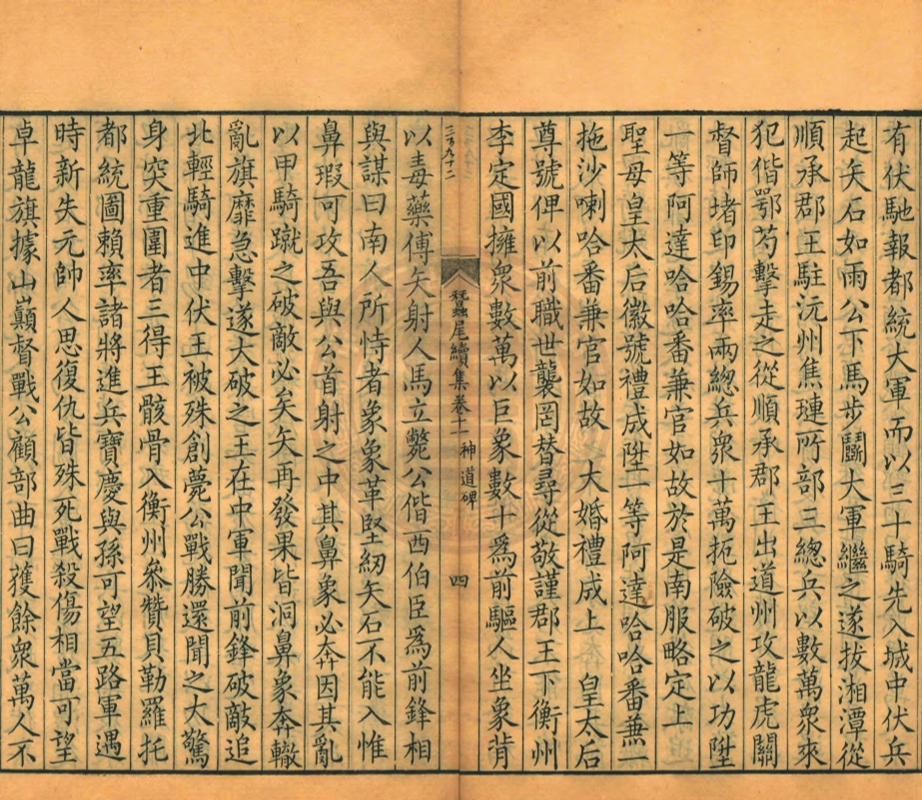 有伏馳報都統大軍而以三十騎先入城中伏兵
起矢石如雨公下馬步鬭大軍繼之遂拔湘潭從
順承郡王駐沅州焦璉所部三總兵以數萬衆來
犯偕鄂芍擊走之從順承郡王出道州攻龍虎關
督師堵印錫率兩總兵衆十萬扼險破之以功陞
一等阿達哈哈番兼官如故於是南服略定上
聖母皇太后徽號禮成陞一等阿達哈哈番兼一
拖沙喇哈番兼官如故 大婚禮成上 皇太后
尊號俾以前職世襲罔替尋從敬謹郡王下衡州
李定國擁衆數萬以巨象數十爲前驅人坐象背
蠶尾續集卷十一 神道碑 四
以毒藥傅矢射人馬立斃公偕西伯臣爲前鋒相
與謀曰南人所恃者象象革堅紉矢石不能入惟
鼻瑕可攻吾與公首射之中其鼻象必奔因其亂
以甲騎蹴之破敵必矣矢再發果皆洞鼻象奔轍
亂旗靡急擊遂大破之王在中軍聞前鋒破敵追
北輕騎進中伏王被殊創薨公戰勝還聞之大驚
身突重圍者三得王骸骨入衡州叅贊貝勒羅托
都統圖賴率諸將進兵寶慶與孫可望五路軍遇
時新失元帥人思復仇皆殊死戰殺傷相當可望
卓龍旗據山巔督戰公顧部曲曰獲餘衆萬人不